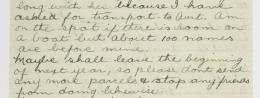 long with her because I have
asked for transport to Aust. Am
on the spot if there is room on
a boat but about 100 names
are before mine.
Maybe shall leave the beginning
of next year, so please dont send
any more parcels & stop any friends
from doing likewise